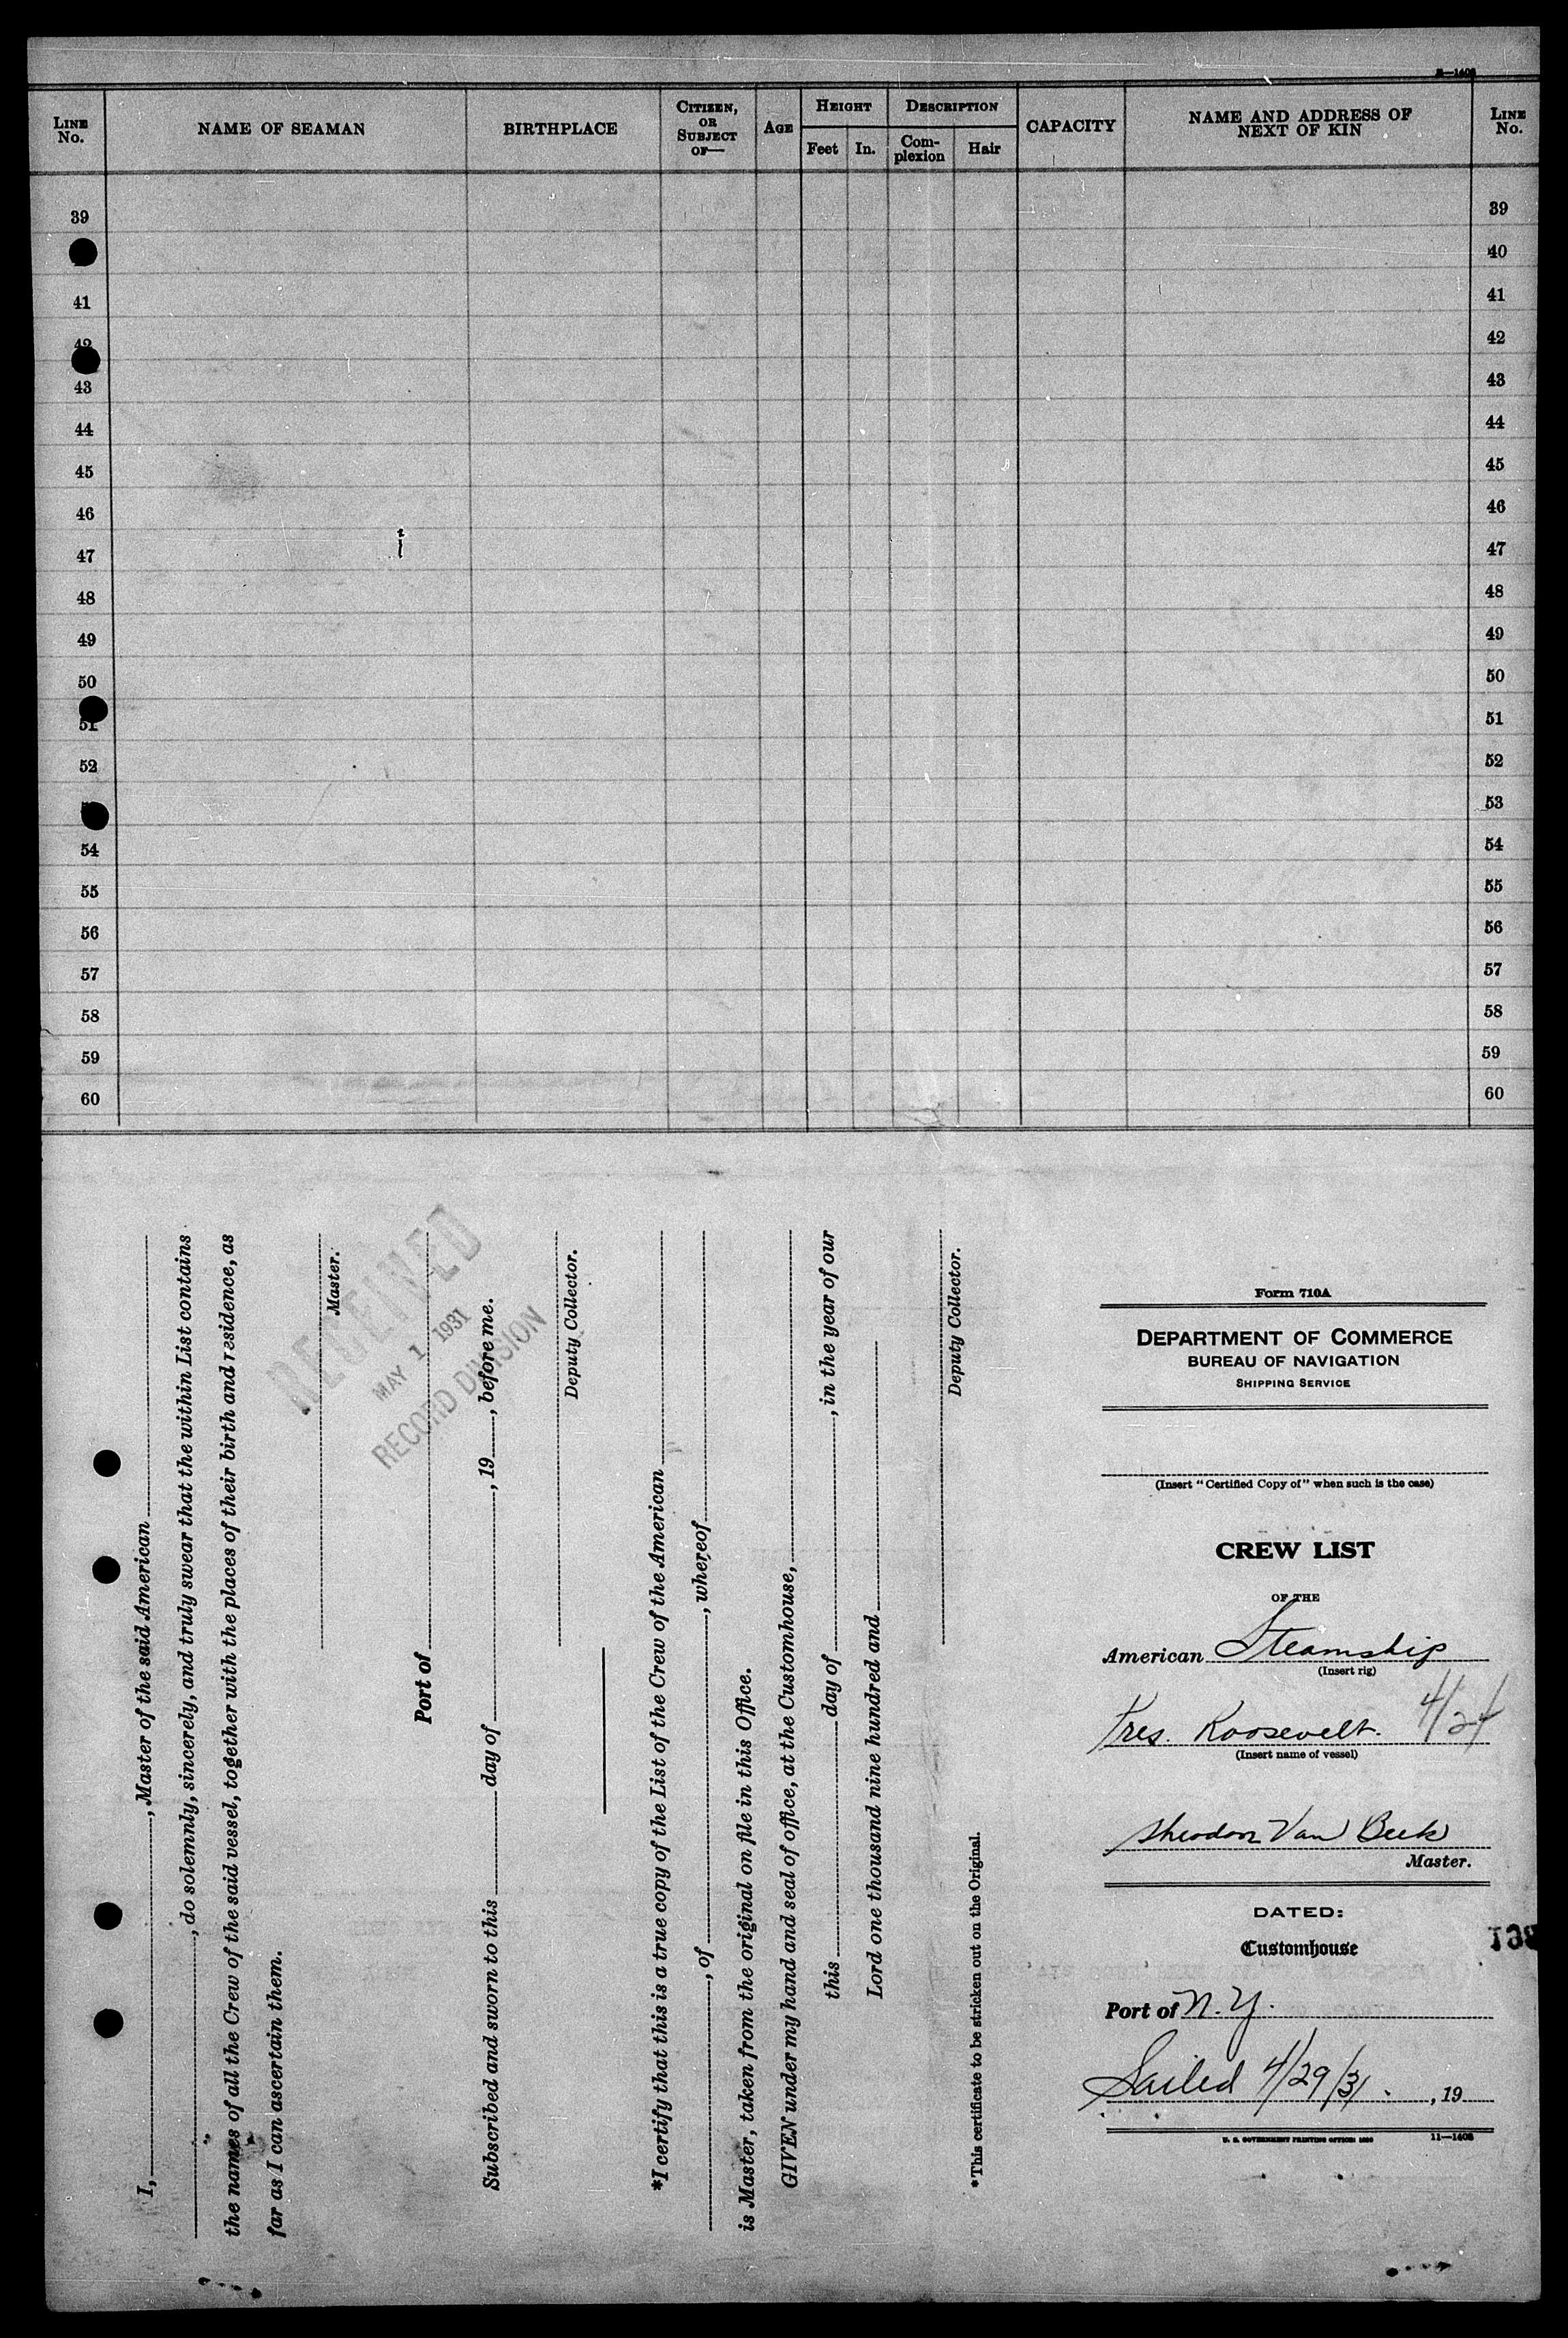 LINE No. NAME OF SEAMAN BIRTHPLACE CITIZEN, OR SUBJECT OF— AGE HEIGHT Feet In. DESCRIPTION Complexion Hair CAPACITY NAME AND ADDRESS OF NEXT OF KIN LINE No.
39 39
40
41 41
42 42
43 43
44 44
45 45
46 46
47 47
48 48
49 49
50 50
51 51
52 52
53
54 54
55 55
56 56
57 57
58 58
59 59
60 60
I, , Master of the said American
, do solemnly, sincerely, and truly swear that the within List contains
the names of all the Crew of the said vessel, together with the places of their birth and residence, as
far as I can ascertain them.
Master.
RECEIVED
MAY 1 1931
RECORD DIVISION
Port of
Subscribed and sworn to this day of , 19 , before me.
Deputy Collector.
*I certify that this is a true copy of the List of the Crew of the American
, of , whereof
is Master, taken from the original on file in this Office.
GIVEN under my hand and seal of office, at the Customhouse,
this day of , in the year of our
Lord one thousand nine hundred and
Deputy Collector.
*This certificate to be stricken out on the Original.
Form 710A
DEPARTMENT OF COMMERCE
BUREAU OF NAVIGATION
SHIPPING SERVICE
(Insert "Certified Copy of" when such is the case)
CREW LIST
OF THE
American Steamship
(Insert rig)
Pres. Roosevelt. 4/24
(Insert name of vessel)
Theodor Van Beek
Master.
DATED:
Customhouse
Port of N. Y.
Sailed 4/29/31. , 19
U. S. GOVERNMENT PRINTING OFFICE: 11—1408